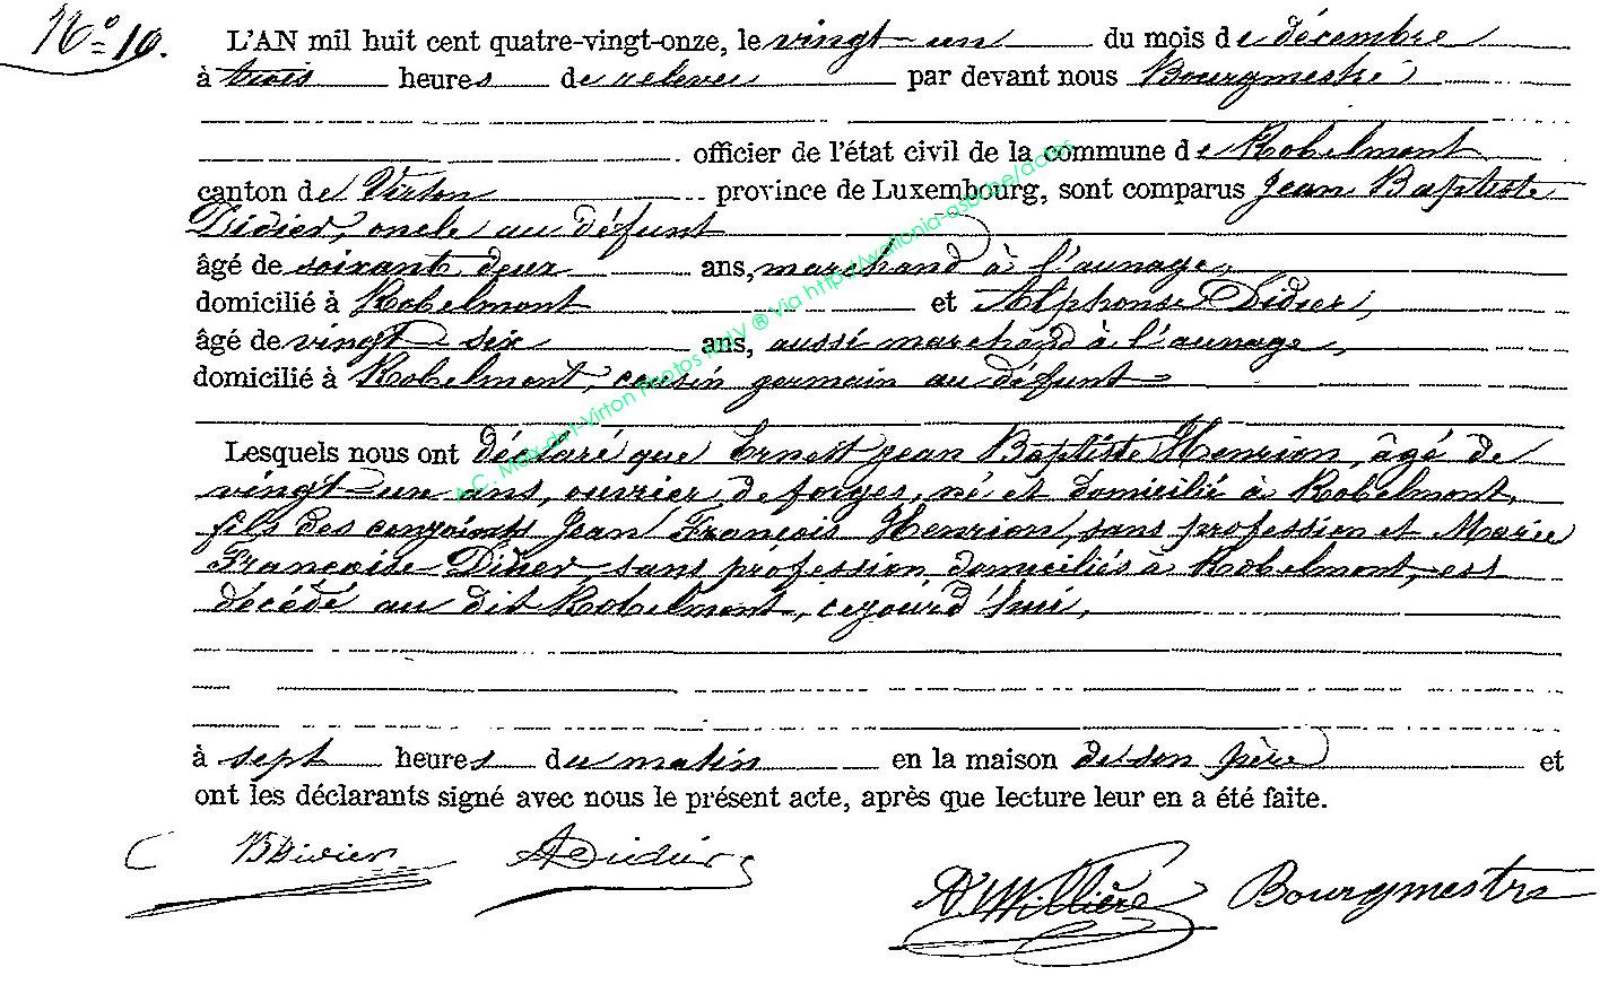 No 10. L'AN mil huit cent quatre-vingt-onze, le vingt-un du mois de décembre
à trois heures de relevée par devant nous Bourgmestre
officier de l'état civil de la commune de Robelmont
canton de Virton province de Luxembourg, sont comparus Jean Baptiste
Didier, oncle au défunt
âgé de soixante deux ans, marchand à l'aunage,
domicilié à Robelmont et Alphonse Didier,
âgé de vingt-six ans, aussi marchand à l'aunage,
domicilié à Robelmont, cousin germain au défunt
Lesquels nous ont déclaré que Ernest Jean Baptiste Henrion, âgé de
vingt-un ans, ouvrier de forges, né et domicilié à Robelmont,
fils des conjoints Jean François Henrion, sans profession et Marie
Françoise Didier, sans profession, domiciliés à Robelmont, est
décédé au dit Robelmont, cejourd'hui,
à sept heures du matin en la maison de son père et
ont les déclarants signé avec nous le présent acte, après que lecture leur en a été faite.
BDidier ADidier
Willière Bourgmestre
Photos via http://wallonia-asbl.be/actes